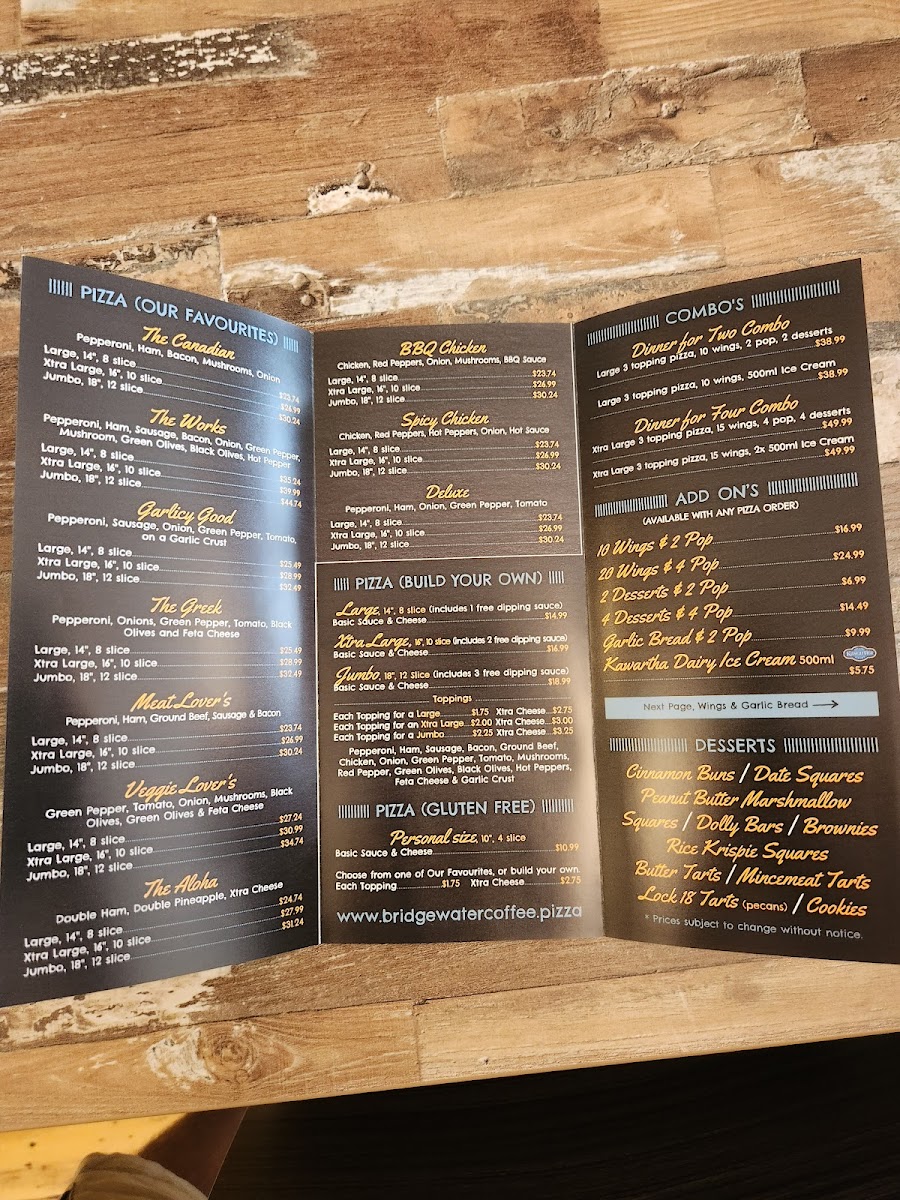 PIZZA (OUR FAVOURITES)
The Canadian
Pepperoni, Ham, Bacon, Mushrooms, Onion
Large, 14", 8 slice $23.74
Xtra Large, 16", 10 slice $26.99
Jumbo, 18", 12 slice $30.24
The Works
Pepperoni, Ham, Sausage, Bacon, Onion, Green Pepper,
Mushroom, Green Olives, Black Olives, Hot Pepper
Large, 14", 8 slice $35.24
Xtra Large, 16", 10 slice $39.99
Jumbo, 18", 12 slice $44.74
Garlicy Good
Pepperoni, Sausage, Onion, Green Pepper, Tomato,
on a Garlic Crust
Large, 14", 8 slice $25.49
Xtra Large, 16", 10 slice $28.99
Jumbo, 18", 12 slice $32.49
The Greek
Pepperoni, Onions, Green Pepper, Tomato, Black
Olives and Feta Cheese
Large, 14", 8 slice $25.49
Xtra Large, 16", 10 slice $28.99
Jumbo, 18", 12 slice $32.49
Meat Lover's
Pepperoni, Ham, Ground Beef, Sausage & Bacon
Large, 14", 8 slice $23.74
Xtra Large, 16", 10 slice $26.99
Jumbo, 18", 12 slice $30.24
Veggie Lover's
Green Pepper, Tomato, Onion, Mushrooms, Black
Olives, Green Olives & Feta Cheese
Large, 14", 8 slice $27.24
Xtra Large, 16", 10 slice $30.99
Jumbo, 18", 12 slice $34.74
The Aloha
Double Ham, Double Pineapple, Xtra Cheese
Large, 14", 8 slice $24.74
Xtra Large, 16", 10 slice $27.99
Jumbo, 18", 12 slice $31.24
BBQ Chicken
Chicken, Red Peppers, Onion, Mushrooms, BBQ Sauce
Large, 14", 8 slice $23.74
Xtra Large, 16", 10 slice $26.99
Jumbo, 18", 12 slice $30.24
Spicy Chicken
Chicken, Red Peppers, Hot Peppers, Onion, Hot Sauce
Large, 14", 8 slice $23.74
Xtra Large, 16", 10 slice $26.99
Jumbo, 18", 12 slice $30.24
Deluxe
Pepperoni, Ham, Onion, Green Pepper, Tomato
Large, 14", 8 slice $23.74
Xtra Large, 16", 10 slice $26.99
Jumbo, 18", 12 slice $30.24
PIZZA (BUILD YOUR OWN)
Large, 14", 8 slice (includes 1 free dipping sauce)
Basic Sauce & Cheese $14.99
Xtra Large, 16", 10 slice (includes 2 free dipping sauce)
Basic Sauce & Cheese $16.99
Jumbo, 18", 12 Slice (includes 3 free dipping sauce)
Basic Sauce & Cheese $18.99
Toppings
Each Topping for a Large $1.75 Xtra Cheese $2.75
Each Topping for an Xtra Large $2.00 Xtra Cheese $3.00
Each Topping for a Jumbo $2.25 Xtra Cheese $3.25
Pepperoni, Ham, Sausage, Bacon, Ground Beef,
Chicken, Onion, Green Pepper, Tomato, Mushrooms,
Red Pepper, Green Olives, Black Olives, Hot Peppers,
Feta Cheese & Garlic Crust
PIZZA (GLUTEN FREE)
Personal size, 10", 4 slice
Basic Sauce & Cheese $10.99
Choose from one of Our Favourites, or build your own.
Each Topping $1.75 Xtra Cheese $2.75
www.bridgewatercoffee.pizza
COMBO'S
Dinner for Two Combo
Large 3 topping pizza, 10 wings, 2 pop, 2 desserts
$38.99
Large 3 topping pizza, 10 wings, 500ml Ice Cream
$38.99
Dinner for Four Combo
Xtra Large 3 topping pizza, 15 wings, 4 pop, 4 desserts
$49.99
Xtra Large 3 topping pizza, 15 wings, 2x 500ml Ice Cream
$49.99
ADD ON'S
(AVAILABLE WITH ANY PIZZA ORDER)
10 Wings & 2 Pop $16.99
20 Wings & 4 Pop $24.99
2 Desserts & 2 Pop $6.99
4 Desserts & 4 Pop $14.49
Garlic Bread & 2 Pop $9.99
Kawartha Dairy Ice Cream 500ml
$5.75
Next Page, Wings & Garlic Bread →
DESSERTS
Cinnamon Buns / Date Squares
Peanut Butter Marshmallow
Squares / Dolly Bars / Brownies
Rice Krispie Squares
Butter Tarts / Mincemeat Tarts
Lock 18 Tarts (pecans) / Cookies
* Prices subject to change without notice.